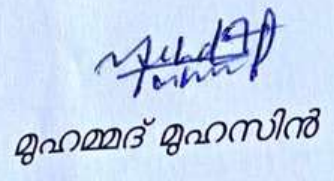 മുഹമ്മദ് മുഹസിൻ